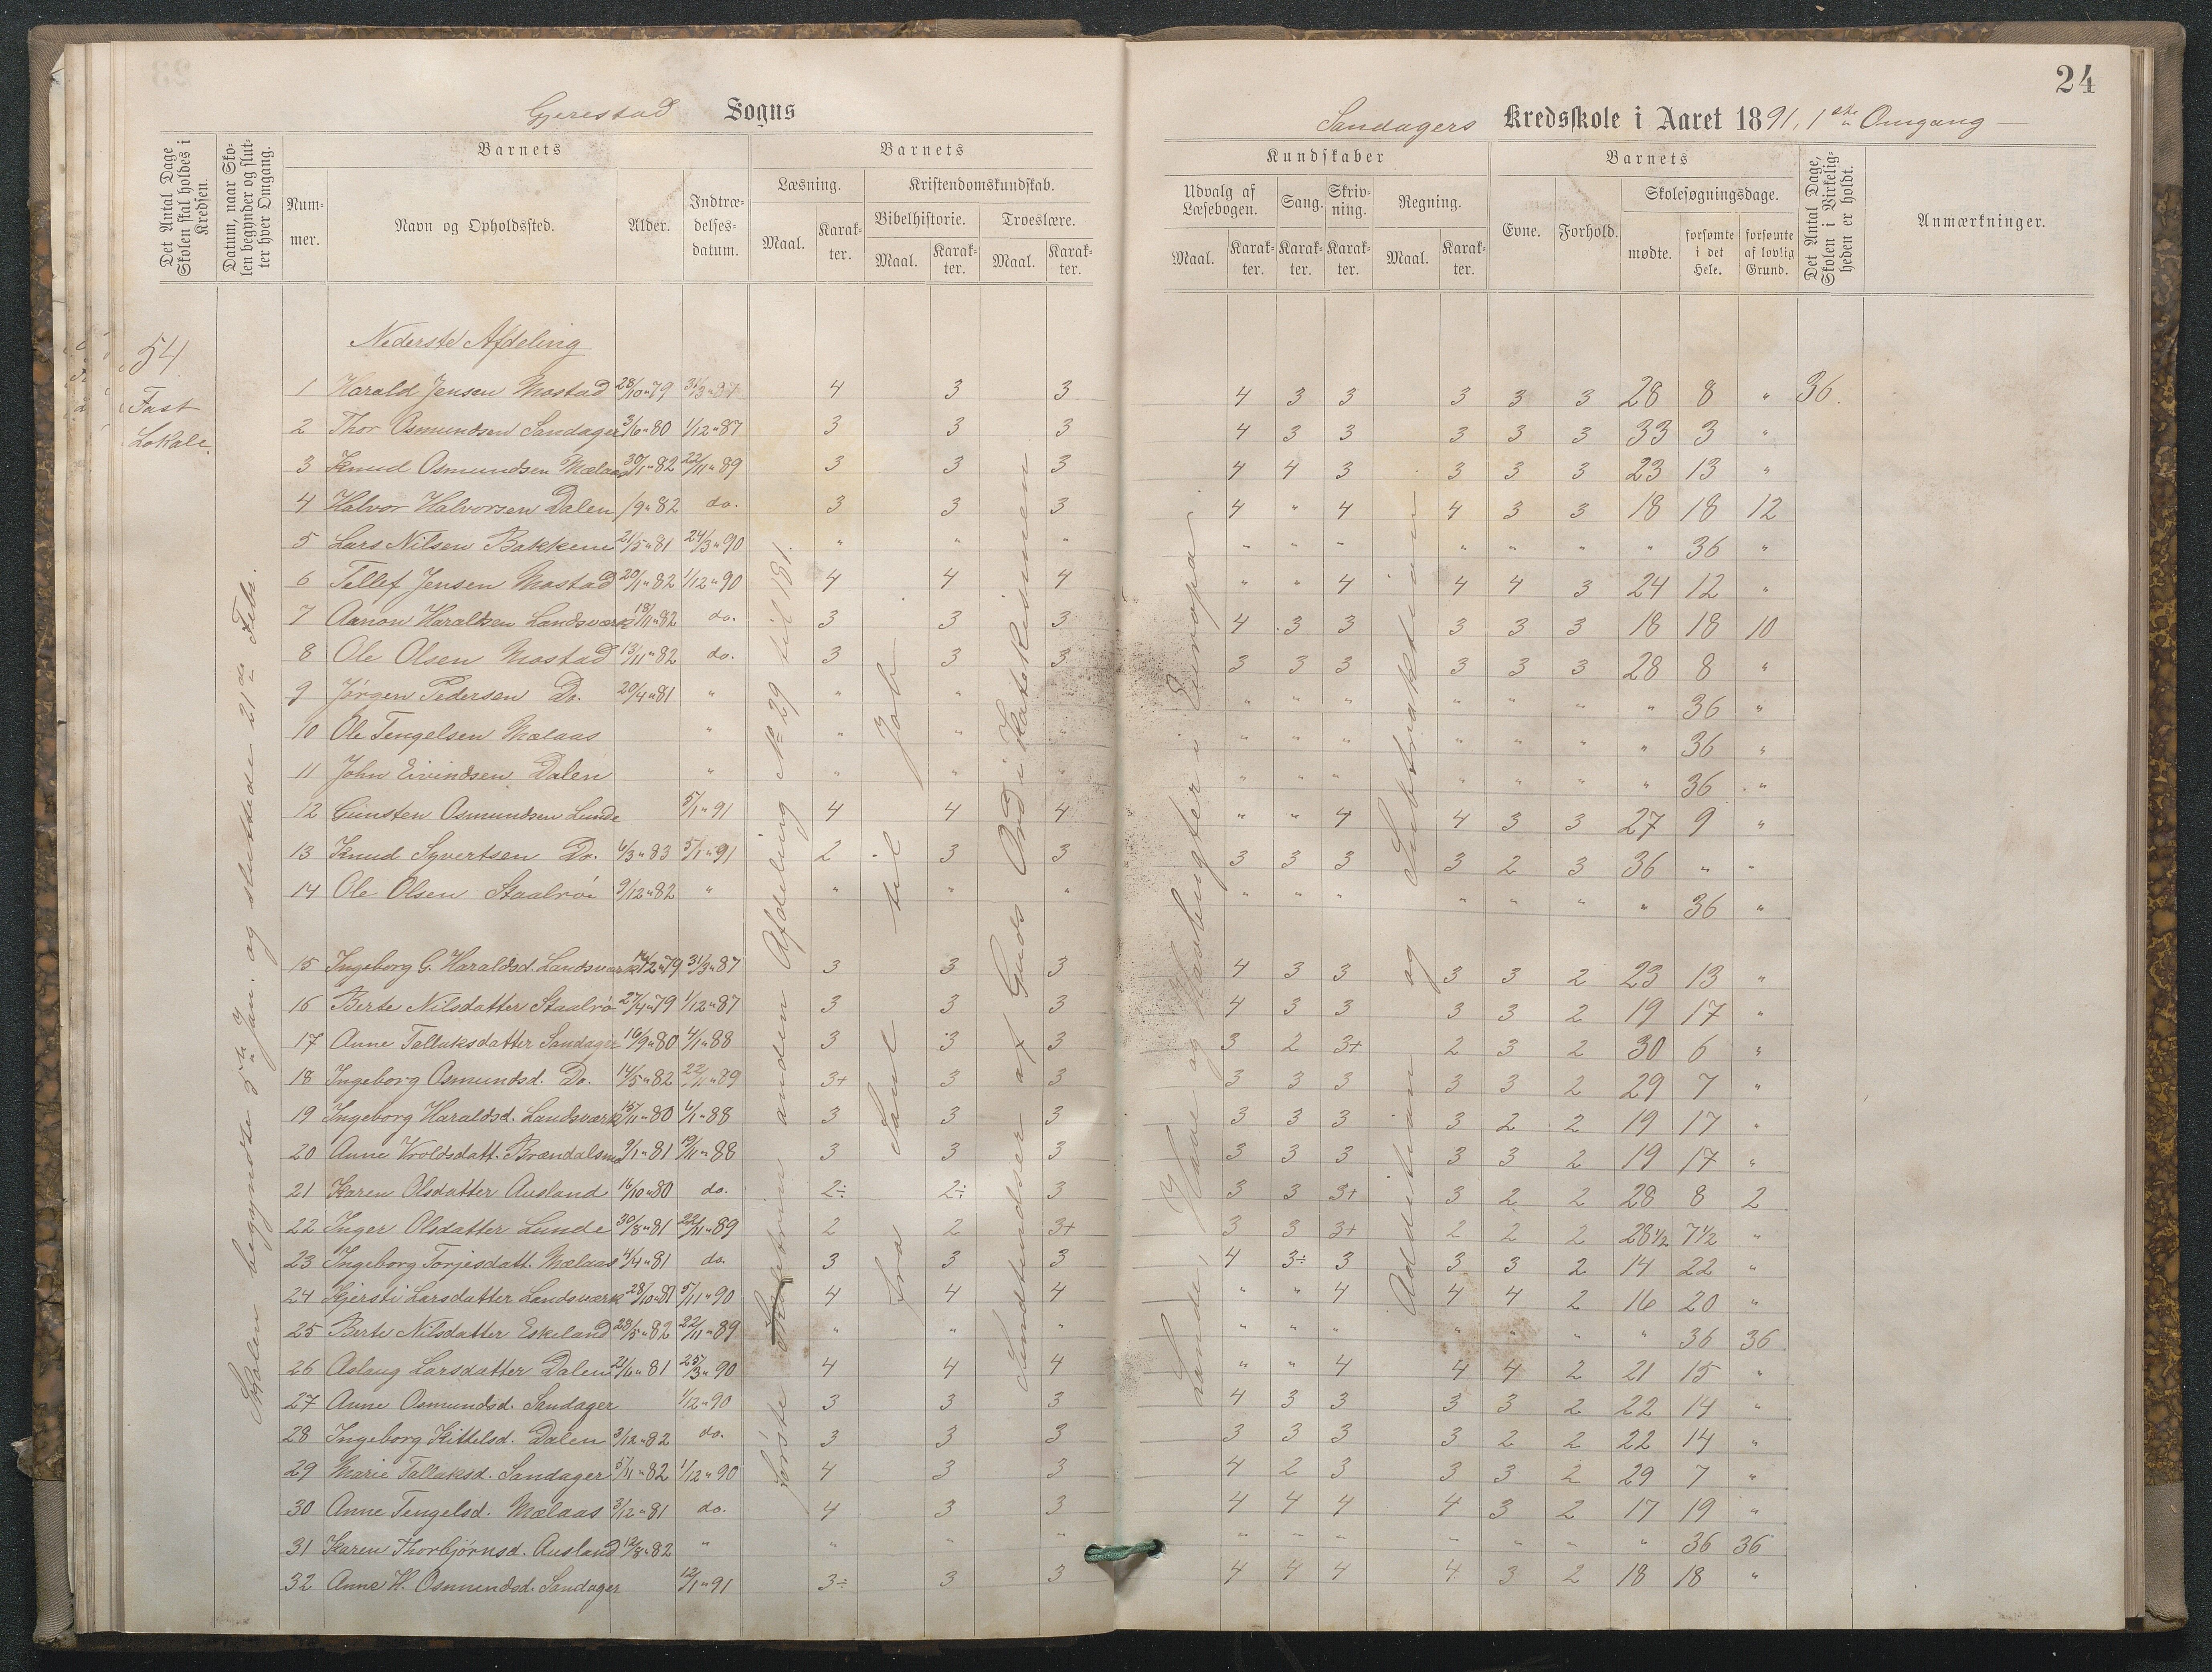 24
Gjerestad Sogns
Sandagers Kredsskole i Aaret 1891, 1ste Omgang
Det Antal Dage Skolen skal holdes i Kredsen.
Datum, naar Skolen begynder og slutter hver Omgang.
Barnets
Nummer.
Navn og Opholdssted.
Alder.
Indtrædelsesdatum.
Barnets
Læsning.
Maal.
Karakter.
Kristendomskundskab.
Bibelhistorie.
Maal.
Karakter.
Troeslære.
Maal.
Karakter.
Kundskaber
Udvalg af Læsebogen.
Maal.
Karakter.
Sang.
Karakter.
Skrivning.
Karakter.
Regning.
Maal.
Karakter.
Barnets
Evne.
Forhold.
Skolesøgningsdage.
mødte.
forsømte i det Hele.
forsømte af lovlig Grund.
Det Antal Dage, Skolen i Virkeligheden er holdt.
Anmærkninger.
54
Fast
Lokale.
Skolen begyndte 5te Jan. og sluttede 21de Febr.
Nederste Afdeling
1 Harald Jensen Mostad 28/10"79 31/3"87 4 3 3 4 3 3 3 3 3 28 8 " 36.
2 Thor Osmundsen Sandager 3/6"80 1/12"87 3 3 3 4 3 3 3 3 3 33 3 "
3 Knud Osmundsen Mælaas 30/1"82 22/11"89 3 3 3 4 4 3 3 3 3 23 13 "
4 Halvor Halvorsen Dalen /9"82 do. 3 3 3 4 " 4 4 3 3 18 18 12
5 Lars Nilsen Bakkene 21/5"81 24/3"90 " " " " " " " " " " 36 "
6 Tellef Jensen Mostad 20/1"82 1/12"90 4 4 4 " " 4 4 4 3 24 12 "
7 Aanon Haraldsen Landsværk 18/11"82 do. 3 3 3 4 3 3 3 3 3 18 18 10
8 Ole Olsen Mostad 13/11"82 do. 3 3 3 3 3 3 3 3 3 28 8 "
9 Jørgen Pedersen Do. 20/4"81 " " " " " " " " " " 36 "
10 Ole Tengelsen Mælaas " " " " " " " " " " " 36 "
11 John Eivindsen Dalen " " " " " " " " " " " 36 "
12 Gunsten Osmundsen Lunde 5/1"91 4 4 4 " " 4 4 3 3 27 9 "
13 Knud Syvertsen Do. 6/3"83 5/1"91 2 3 3 3 3 3 3 2 3 36 " "
14 Ole Olsen Staalrøi 9/12"82 " " " " " " " " " " " 36 "
15 Ingeborg G. Haraldsd. Landsværk /2"79 31/3"87 3 3 3 4 3 3 3 3 2 23 13 "
16 Berte Nilsdatter Staalrø 27/4"79 1/12"87 3 3 3 4 3 3 3 3 2 19 17 "
17 Anne Tallaksdatter Sandager 16/9"80 4/1"88 3 3 3 3 2 3+ 2 3 2 30 6 "
18 Ingeborg Osmundsd. Do. 14/5"82 22/11"89 3+ 3 3 3 3 3 3 3 2 29 7 "
19 Ingeborg Haraldsd. Landsværk 15/11"80 4/1"88 3 3 3 3 3 3 3 2 2 19 17 "
20 Anne Vroldsdatt. Brændalsmo 9/1"81 19/11"88 3 3 3 3 3 3 3 3 2 19 17 "
21 Karen Olsdatter Ausland 16/10"80 do. 2÷ 2÷ 3 3 3 3+ 3 2 2 28 8 2
22 Inger Olsdatter Lunde 30/8"81 22/11"89 2 2 3+ 3 3 3+ 2 2 2 28½ 7½ "
23 Ingeborg Torjesdatt. Mælaas 4/4"81 do. 3 3 3 4 3÷ 3 3 3 2 14 22 "
24 Kjersti Larsdatter Landsværk 28/10"81 5/11"90 4 4 4 " " 4 4 4 2 16 20 "
25 Berte Nilsdatter Eskeland 28/5"82 22/11"89 " " " " " " " " " " 36 36
26 Aslaug Larsdatter Dalen 21/6"81 25/3"90 4 4 4 " " 4 4 4 2 21 15 "
27 Anne Osmundsd. Sandager 1/12"90 3 3 3 4 3 3 3 3 2 22 14 "
28 Ingeborg Kittelsd. Dalen 3/12"82 do. 3 3 3 3 3 3 3 2 2 22 14 "
29 Marie Tallaksd. Sandager 5/11"82 1/12"90 4 3 3 4 2 3 3 3 2 29 7 "
30 Anne Tengelsd. Mælaas 3/12"81 do. 4 3 3 4 4 4 4 3 2 17 19 "
31 Karen Thorbjørnsd. Ausland 12/8"82 " " " " " " " " " " " 36 36
32 Anne H. Osmundsd. Sandager 12/1"91 3÷ 3 3 4 4 4 4 3 2 18 18 "
Første anden Afdeling № 29 til 181.
Fra Saul til Job
Sandtendver af Guds Ord i Katekismen
Lande, Have og Havbugter i Europa
Addition og Subtraktion